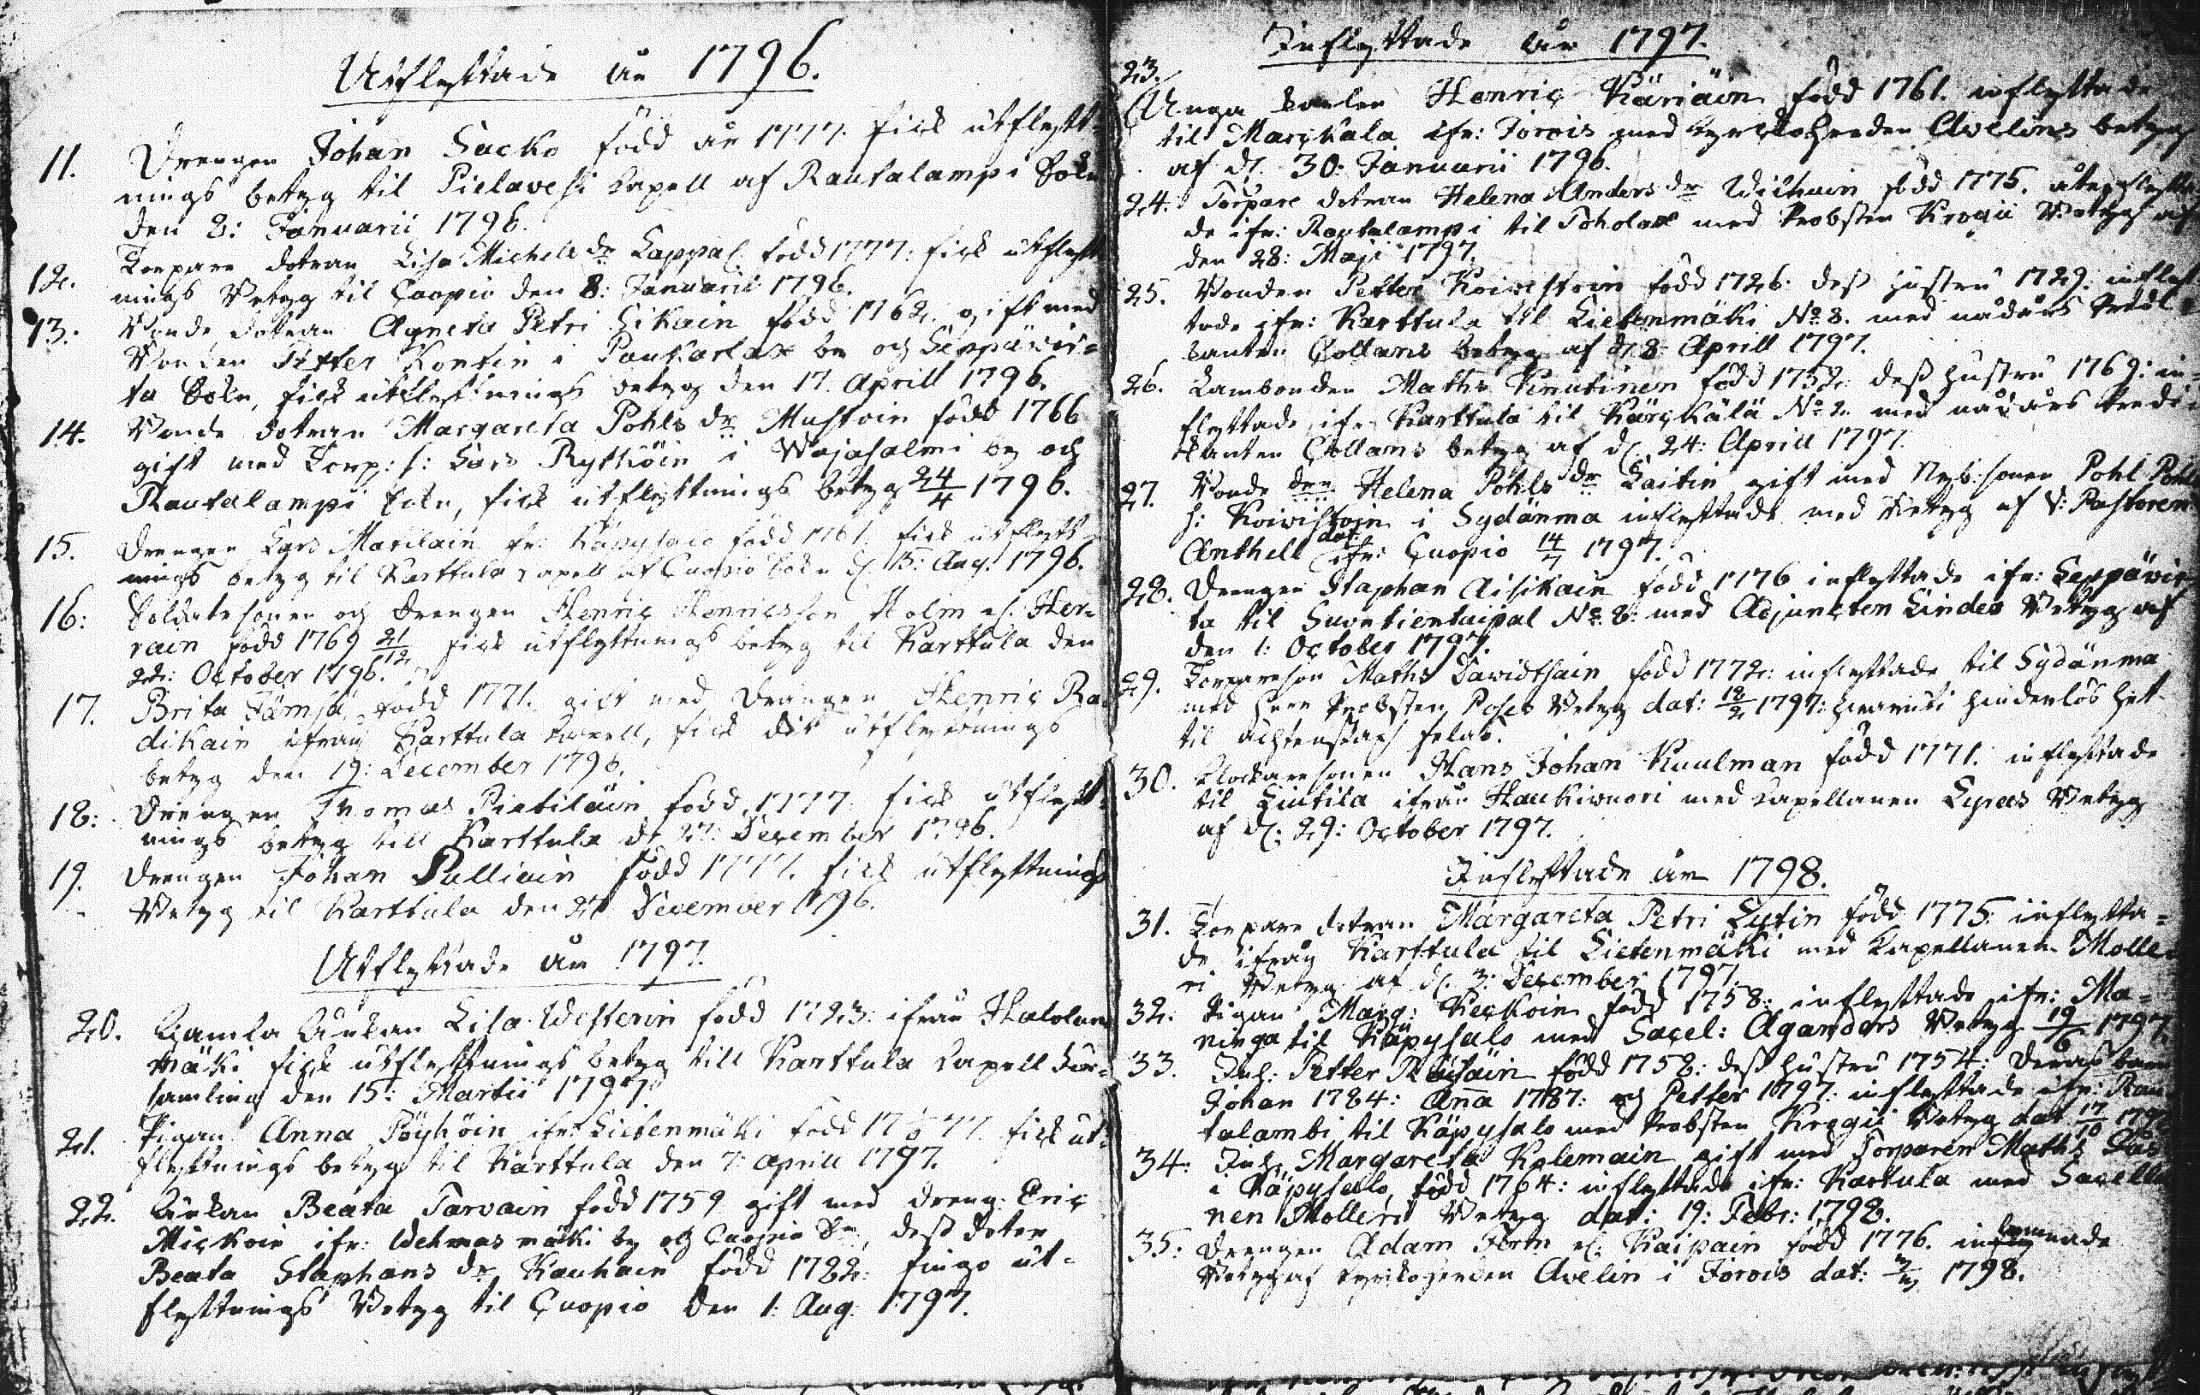 Utflyttade år 1796.
11. Drengen Johan Sacko född år 1777. fick utflytt-
nings betyg til Pielavesi Capell af Rautalampi Sokn
den 8: Januarii 1796.
12. Torpare dotran Lisa Michels dr Lappal. född 1777. fick utflytt
nings Betyg til Cuopio den 8: Januarii 1796.
13. Bonde dotran Agneta Petri Hikain född 1762. gift med
Bonden Petter Kontin i Paukarlax by och Leppävir-
ta Sokn, fick utflyttnings betyg den 17. Aprill 1796.
14. Bonde dotran Margareta Pohls dr Mustoin född 1766
gift med Torp: s: Lars Rythöin i Wajasalmi by och
Rautalampi Sokn, fick utflyttnings betyg 24/4 1796.
15. Drengen Lars Matilain fr: Käpysalo född 1761. fick utflytt-
nings betyg til Karttula Capell af Cuopio Sokn d. 15: Aug: 1796.
16: Soldatesonen och Drengen Henric Henricsson Holm el. Her-
rain född 1769 21/12 fick utflyttnings betyg til Karttula den
22: October 1796.
17. Brita Jämsä född 1771. gift med Drengen Henric Ra-
dikain ifrån Karttula Capell, fick dit utflyttnings
betyg den 19: December 1796.
18: Drengen Thomas Pietiläin född 1777. fick utflytt-
nings betyg till Karttula d. 27: December 1796.
19. Drengen Johan Pulliain född 1777. fick utflyttnings
Betyg til Karttula den 27 December 1796.
Utflyttade år 1797.
20. Gamla Änkan Lisa Westerin född 1723: ifrån Halolan
mäki fick utflyttnings betyg till Karttula Capell För-
samling den 15: Martii 1797.
21. Pigan Anna Pöyhöin ifr: Lietenmäki född 1777. fick ut-
flyttnings betyg til Karttula den 7: Aprill 1797.
22. Änkan Beata Tarvain född 1759 gift med dreng: Eric
Mickoin ifr: Wehmasmäki by och Cuopio Sn, dess doter
Beata Staphans dr Kauhain född 1782: fingo ut-
flyttnings Betyg til Cuopio den 1: Aug: 1797.
Inflyttade år 1797.
23. Unga karlen Henric Käriäin född 1761. inflyttade
til Marckala ifr: Jorois med Kyrckoherden Avelins betyg
af d. 30: Januarii 1796.
24. Torpare dotran Helena Anders dr Wichuin född 1775. återflytta
de ifr: Rautalampi til Toholax med Probsten Krogii Betyg af
den 28: Maji 1797.
25. Bonden Petter Koivistoin född 1726: dess hustru 1729: inflyt-
tade ifr: Karttula til Lietenmäki No 8. med nådårs Predi-
kanten Collans betyg af d 8: Aprill 1797.
26. Lambonden Maths Knutinen född 1752: dess hustru 1769: in-
flyttade ifr. Karttula til Kärckälä No 2. med nådårs Predi-
kanten Collans betyg af d. 24: Aprill 1797.
27. Bonde dren Helena Pohls dr Laitin gift med Nyb: sonen Pohl Pohls
s: Koivistoin i Sydänma inflyttade med Betyg af V: Pastoren
Anthell ifr: Cuopio dat: 14/7 1797.
28. Drengen Staphan Aisikain född 1776 inflyttade ifr: Leppävir-
ta til Suontientaipal No 8: med Adjuncten Lindes Betyg af
den 1: October 1797.
29. Torpareson Maths Davidsain född 1772: inflyttade til Sydänma
med Herr Probsten Poses Betyg dat: 18/2 1797: hinderlös het
til ächtenskap felas.
30. Klockaresonen Hans Johan Kuulman född 1771. inflyttade
til Liutila ifrån Haukivuori med Capellanen Cyræs Betyg
af d. 29: October 1797.
Inflyttade år 1798.
31. Torpare dotran Margareta Petri Lytin född 1775: inflytta-
de ifrån Karttula til Lietenmäki med Capellanen Molle-
ri Betyg af d. 3: December 1797.
32. Pigan Marg: Keckoin född 1758: inflyttade ifr: Ma-
ninga til Käpysalo med Sacel: Aganders Betyg 19/6 1797
33. Inh: Petter Räisäin född 1752: dess hustru 1754: deras barn
Johan 1784: Ana 1787: och Petter 1797: inflyttade ifr: Rau
talambi til Käpysalo med Probsten Krogii Betyg dat 17/10 179
34: Inh. Margareta Kolemain gift med Torparen Maths
i Käpysallo, född 1764: inflyttade ifr: Kartula med Sacella
nen Molleri Betyg dat: 19: Febr: 1798.
35: Drengen Adam Form el. Kaipain född 1776. inlemnade
Betyg af Kyrkoherden Avelin i Jorois dat: 1798.